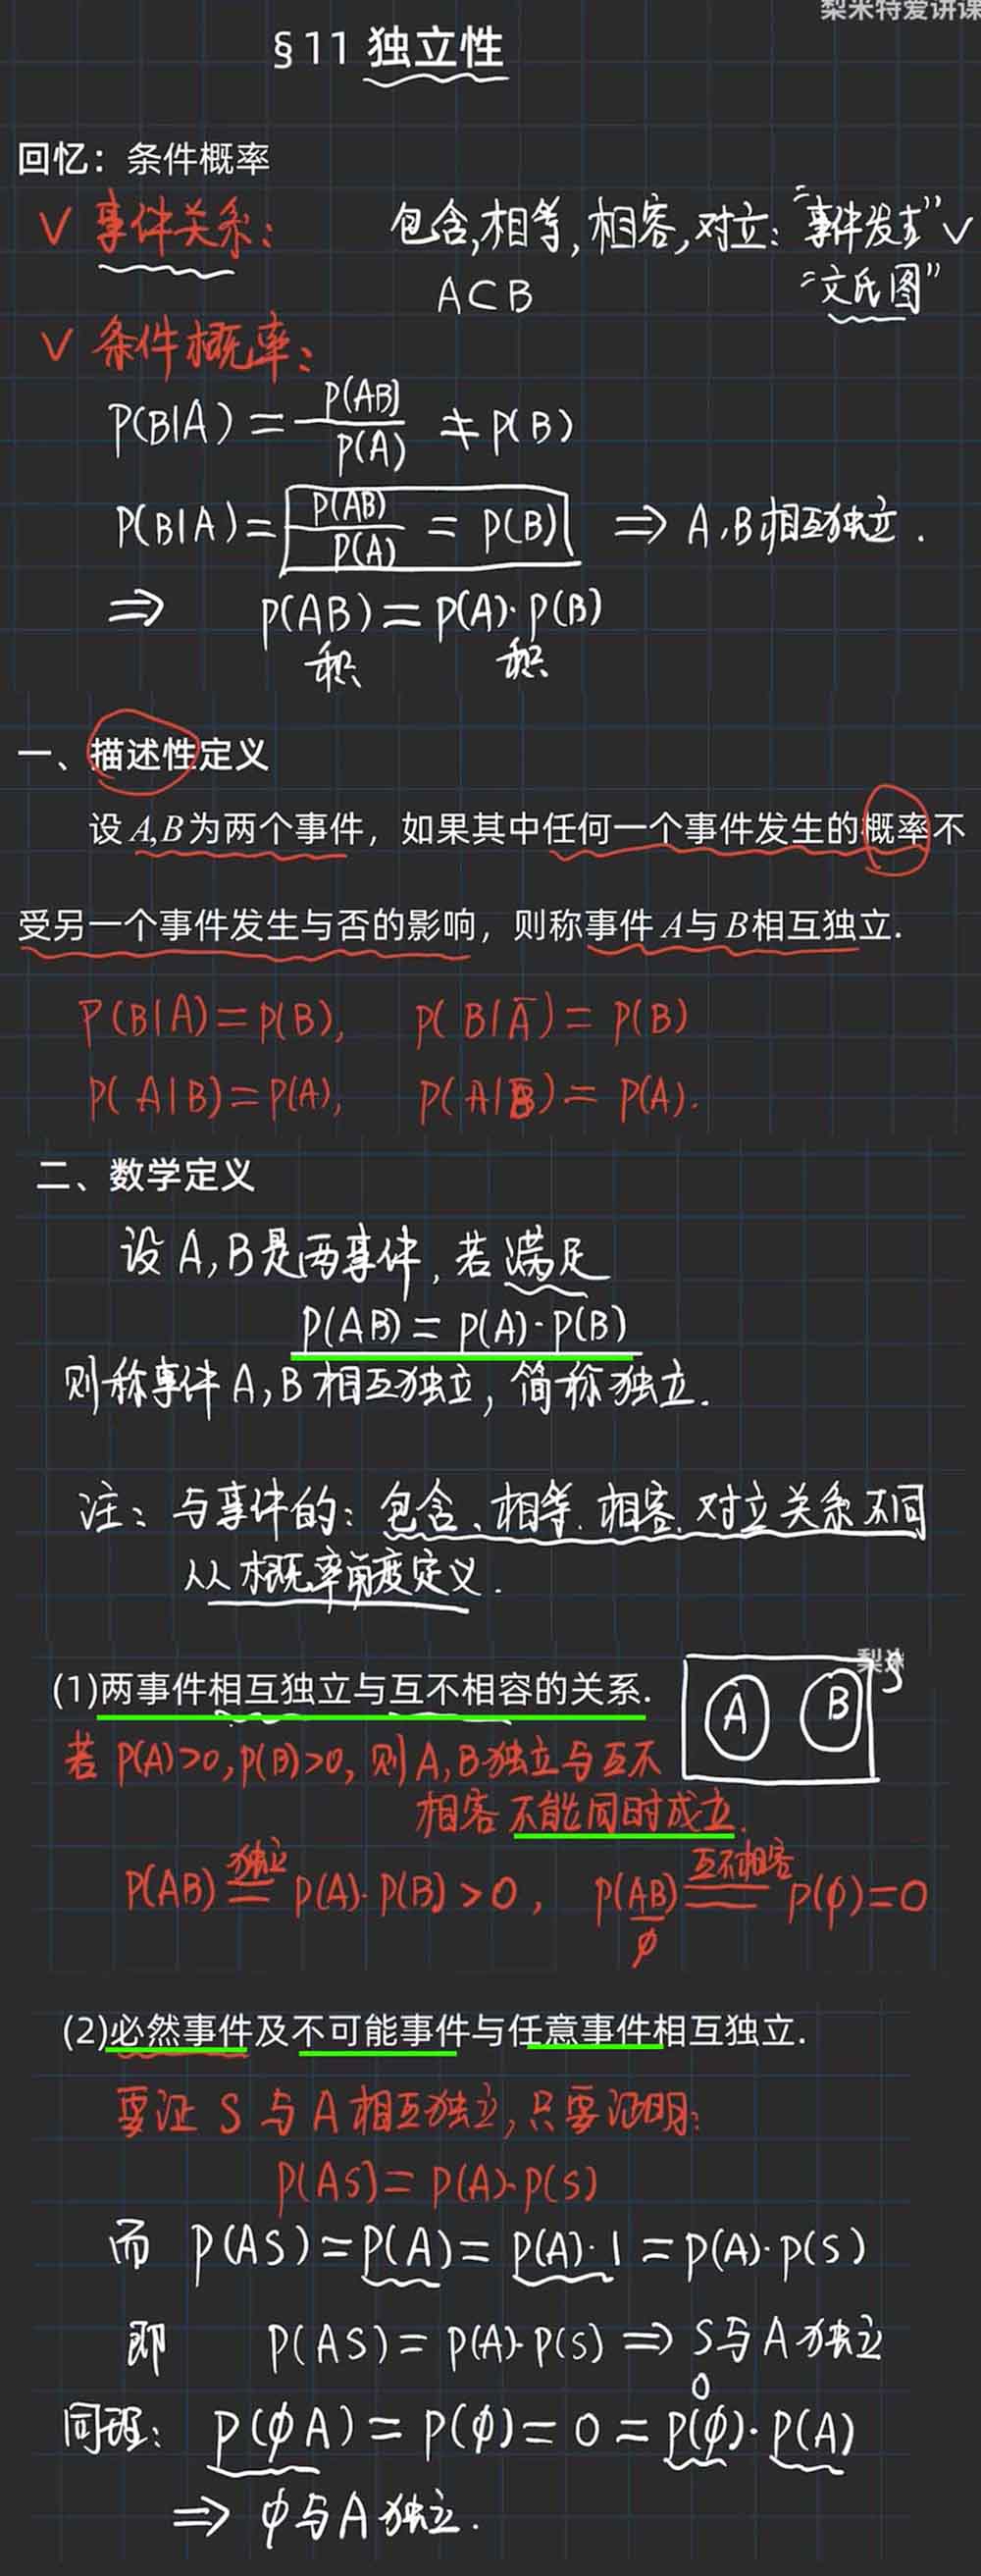 梨米特爱讲课
§11 独立性
回忆：条件概率
∨ 事件关系：　包含,相等,相容,对立：“事件发生”∨
A⊂B　“文氏图”
∨ 条件概率：
P(B|A) = P(AB)/P(A) ≠ P(B)
P(B|A) = P(AB)/P(A) = P(B) ⇒ A,B相互独立.
⇒ P(AB) = P(A)·P(B)
积　积
一、描述性定义
设A,B为两个事件，如果其中任何一个事件发生的概率不
受另一个事件发生与否的影响，则称事件A与B相互独立.
P(B|A) = P(B),　P(B|Ā) = P(B)
P(A|B) = P(A),　P(A|B̄) = P(A).
二、数学定义
设A,B是两事件,若满足
P(AB) = P(A)·P(B)
则称事件A,B相互独立,简称独立.
注：与事件的：包含、相等、相容、对立关系不同
从概率角度定义.
梨米
(1)两事件相互独立与互不相容的关系.
A　B　S
若P(A)>0,P(B)>0,则A,B独立与互不
相容不能同时成立.
独立　互不相容
P(AB) = P(A)·P(B)>0,　P(AB) = P(φ)=0
φ
(2)必然事件及不可能事件与任意事件相互独立.
要证S与A相互独立,只要证明：
P(AS) = P(A)·P(S)
而 P(AS) = P(A) = P(A)·1 = P(A)·P(S)
即 P(AS) = P(A)·P(S) ⇒ S与A独立
0
同理： P(φA) = P(φ) = 0 = P(φ)·P(A)
⇒ φ与A独立.